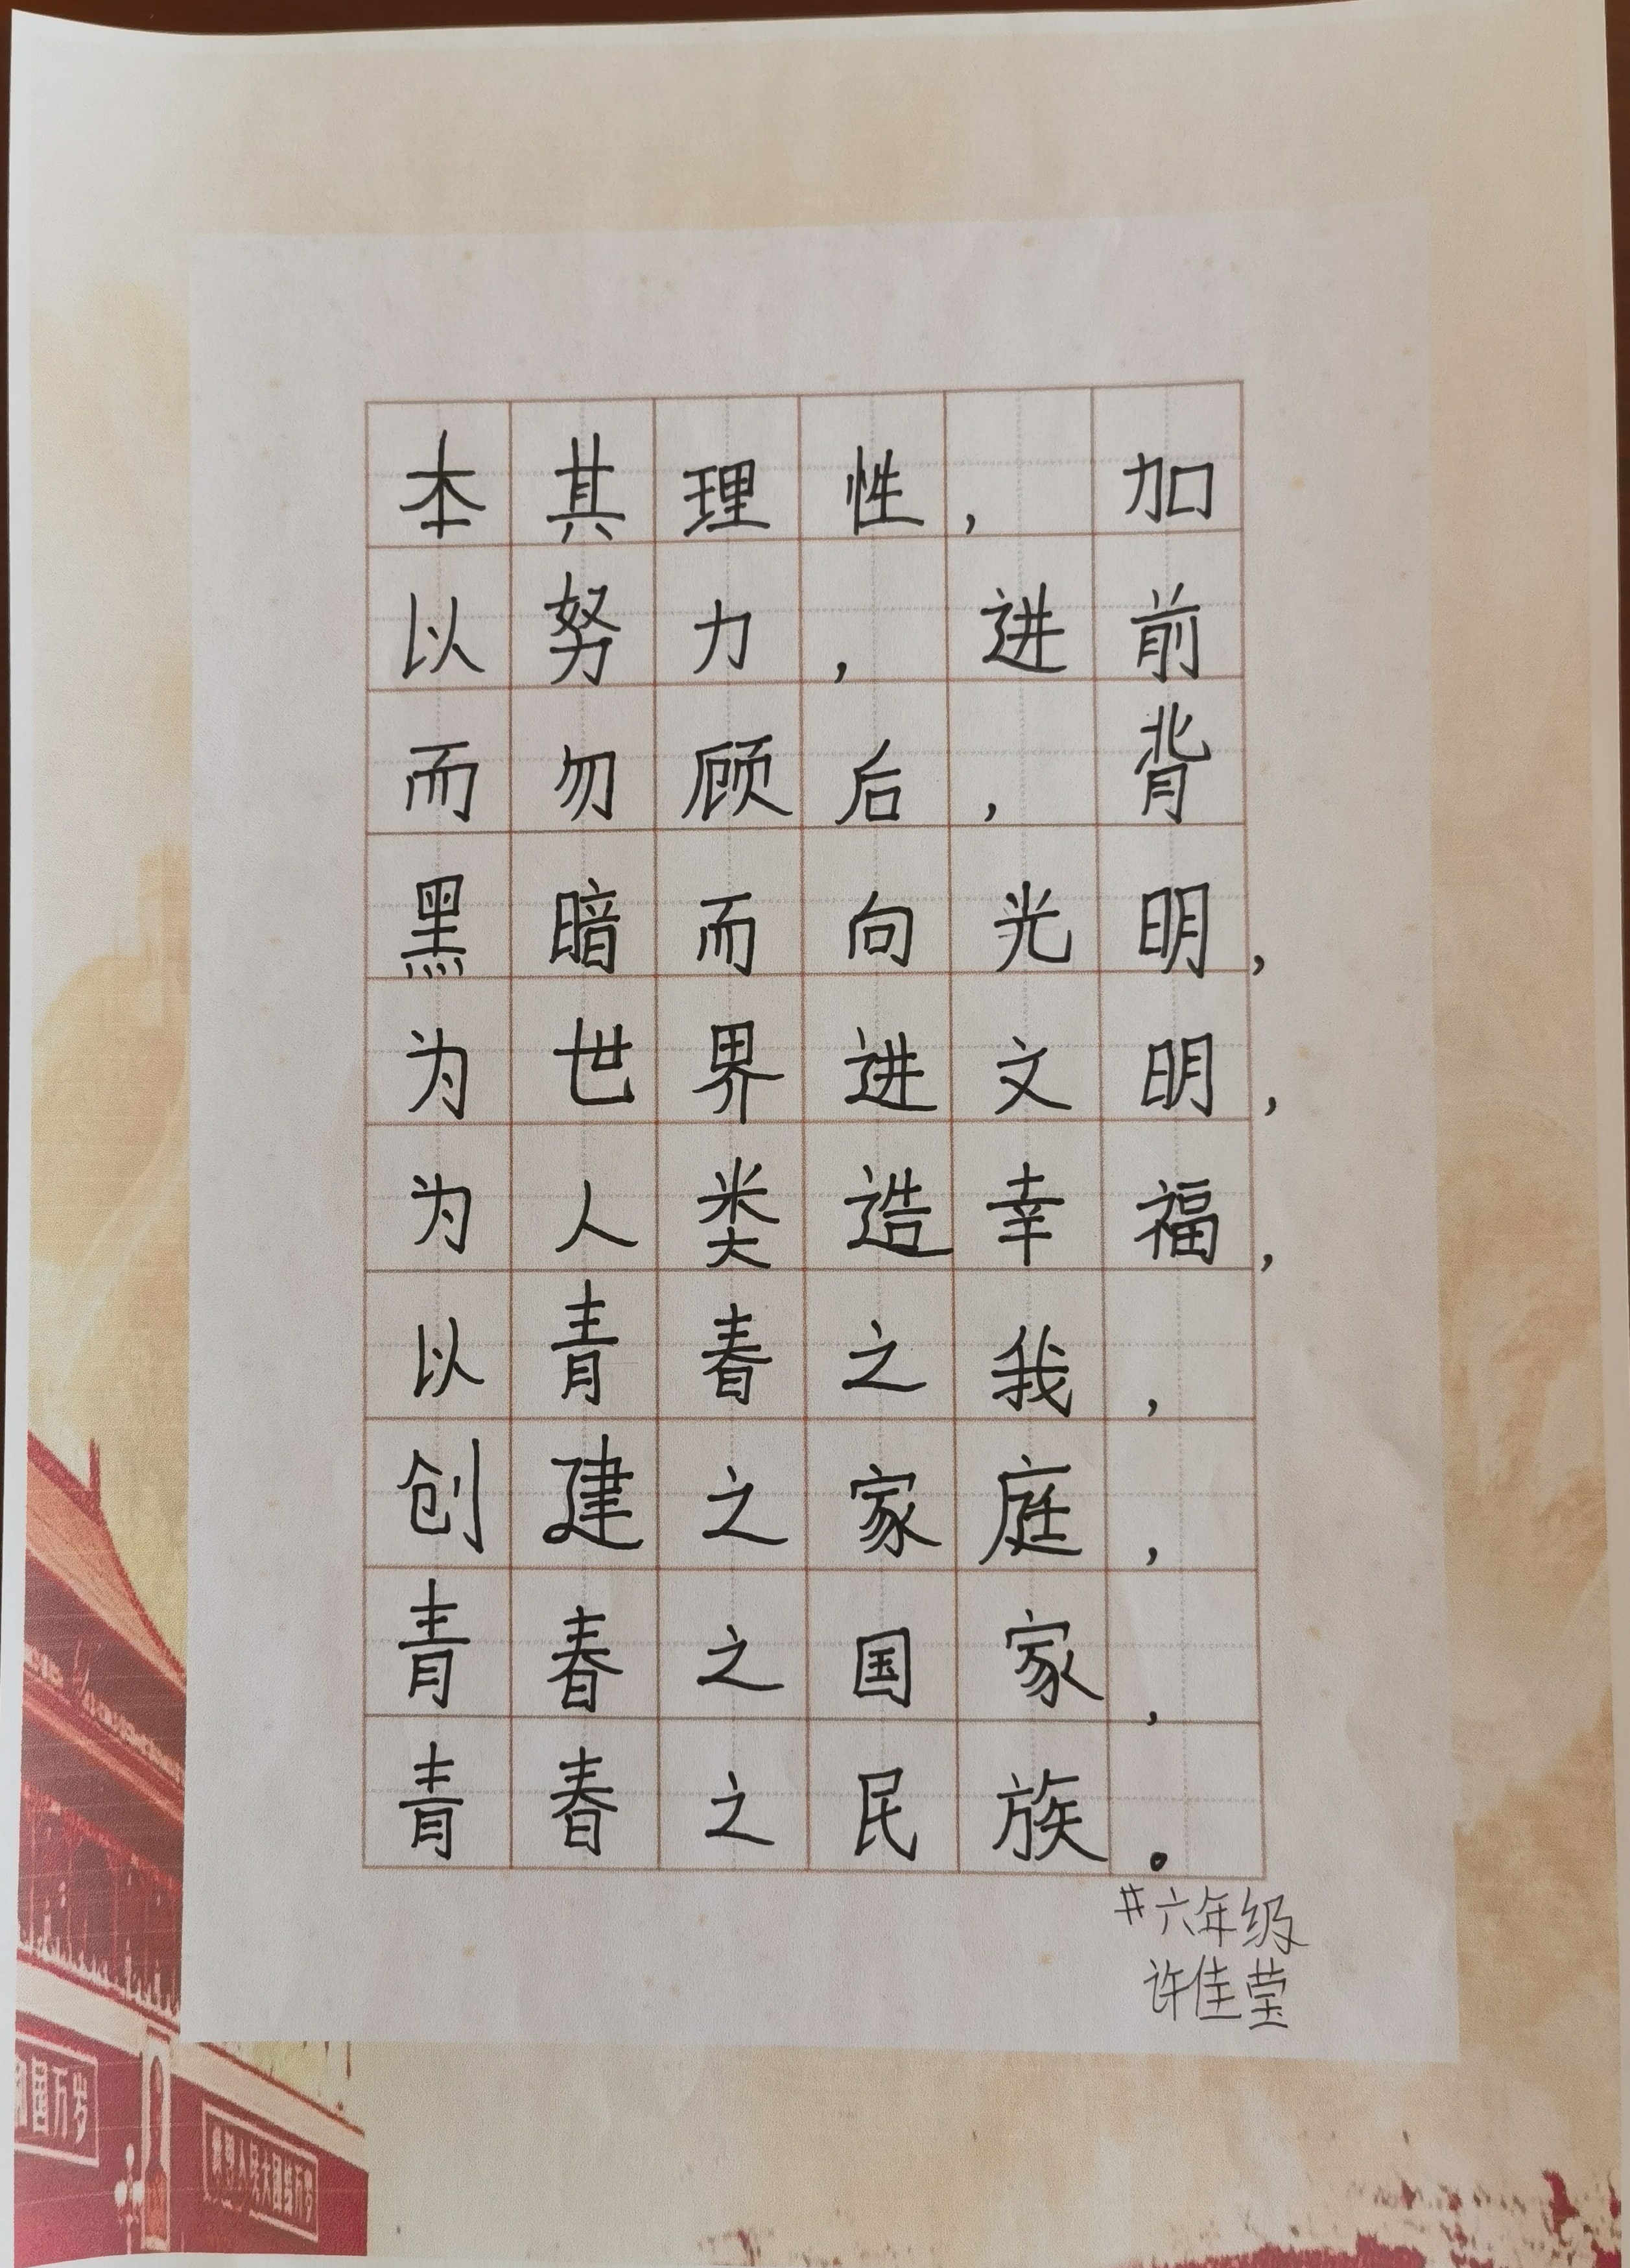 本其理性，加
以努力，进前
而勿顾后，背
黑暗而向光明，
为世界进文明，
为人类造幸福，
以青春之我，
创建之家庭，
青春之国家，
青春之民族.
#六年级
许佳莹
国万岁
人民大团结万岁